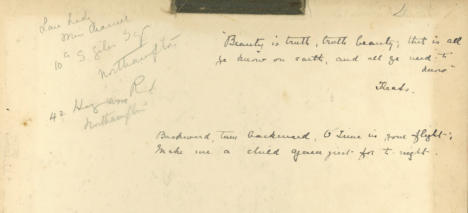 Miss
10 S. Giles
Northampton
42
Northampton
"Beauty is truth, truth beauty; that is all
ye know on earth, and all ye need to
know"
Keats.
Backward, turn backward, O Time in your flight;
Make me a child again just for to night.